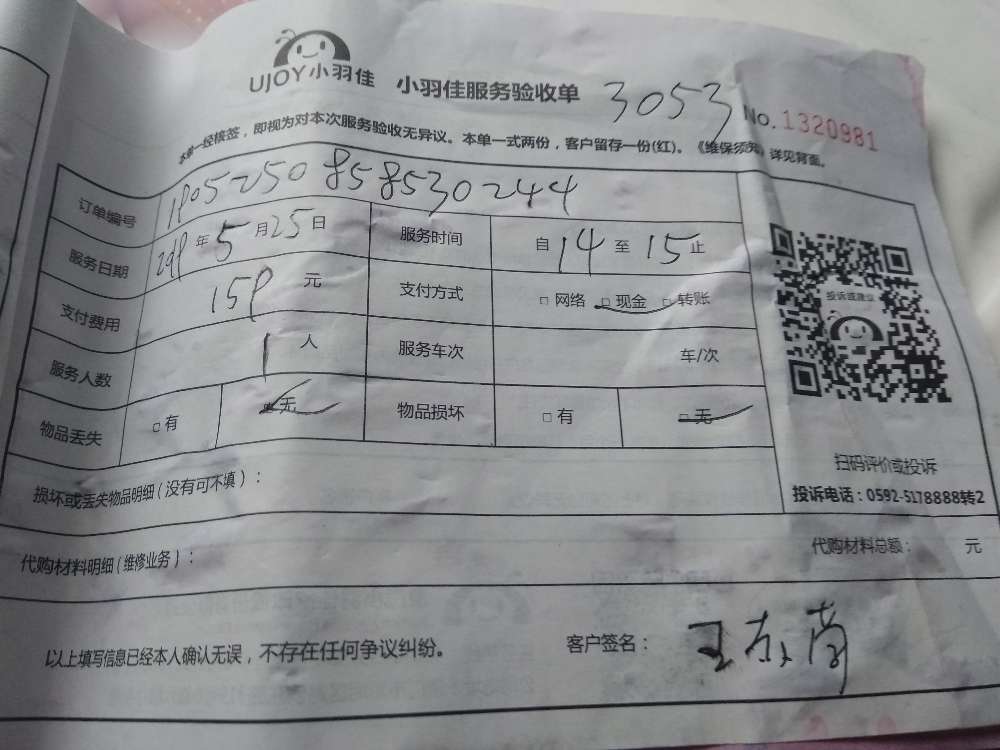 UJOY小羽佳 小羽佳服务验收单 3053 No.1320981
本单一经核签，即视为对本次服务验收无异议。本单一式两份，客户留存一份(红)。《维保须知》详见背面。
订单编号 1905250858530244
服务日期 2019年5月25日 服务时间 自14至15止
支付费用 159元 支付方式 □网络 □现金 □转账
服务人数 1人 服务车次 车/次
物品丢失 □有 □无 物品损坏 □有 □无
投诉或建议
扫码评价或投诉
投诉电话：0592-5178888转2
损坏或丢失物品明细(没有可不填)：
代购材料明细(维修业务)： 代购材料总额： 元
以上填写信息已经本人确认无误，不存在任何争议纠纷。 客户签名：